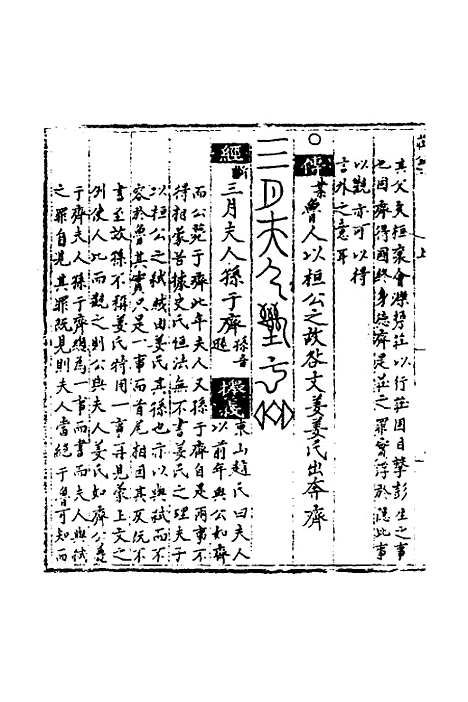 其父文桓襄會爍勞莊以行莊因目擊彭生之事
也因齊得國終身德齊足莊之罪實浮於隱此事
以觀亦可以得
言外之意耳
傳 葉魯人以桓公之故咎文姜姜氏出奔齊
三月夫人孫于齊
經 三月夫人孫于齊
孫音遜
東山趙氏曰夫人
以前年與公如齊
而公薨于齊此年夫人又孫于齊自是兩事不
得相蒙昔據史氏恒法無不書姜氏之理夫子
以桓公之弒咸由姜氏其孫也亦以與弒而不
容於魯其實只是一事而首尾相因其反阮不
書至故孫不稱姜氏特用一事再見蒙上文之
例使人比而觀之則公與夫人姜氏如齊公薨
于齊夫人孫于齊總為一事而書而夫人與弒
之罪自見其罪既見則夫人當絕于魯可知而